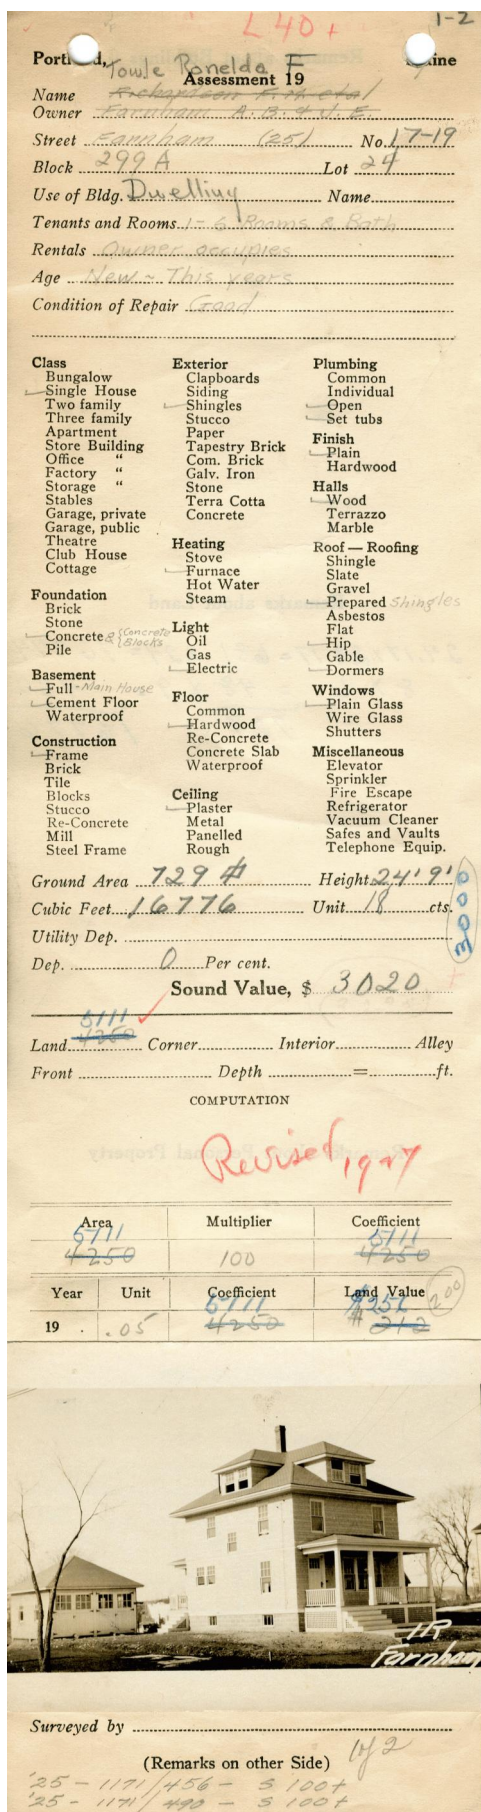 L 40 +
1-2
Portland, Maine
Towle Ronelda F
Assessment 19
Name Richardson F. M. et al
Owner Farnham A. B. & J. E.
Street Farnham (25) No. 17-19
Block 299 A Lot 24
Use of Bldg. Dwelling Name
Tenants and Rooms 1-6 Rooms & Bath
Rentals Owner occupies
Age New ~ This years
Condition of Repair Good
Class
Bungalow
Single House
Two family
Three family
Apartment
Store Building
Office "
Factory "
Storage "
Stables
Garage, private
Garage, public
Theatre
Club House
Cottage
Foundation
Brick
Stone
Concrete & {Concrete Blocks
Pile
Basement
Full - Main House
Cement Floor
Waterproof
Construction
Frame
Brick
Tile
Blocks
Stucco
Re-Concrete
Mill
Steel Frame
Exterior
Clapboards
Siding
Shingles
Stucco
Paper
Tapestry Brick
Com. Brick
Galv. Iron
Stone
Terra Cotta
Concrete
Heating
Stove
Furnace
Hot Water
Steam
Light
Oil
Gas
Electric
Floor
Common
Hardwood
Re-Concrete
Concrete Slab
Waterproof
Ceiling
Plaster
Metal
Panelled
Rough
Plumbing
Common
Individual
Open
Set tubs
Finish
Plain
Hardwood
Halls
Wood
Terrazzo
Marble
Roof — Roofing
Shingle
Slate
Gravel
Prepared Shingles
Asbestos
Flat
Hip
Gable
Dormers
Windows
Plain Glass
Wire Glass
Shutters
Miscellaneous
Elevator
Sprinkler
Fire Escape
Refrigerator
Vacuum Cleaner
Safes and Vaults
Telephone Equip.
Ground Area 729 # Height 24' 9'
Cubic Feet 16776 Unit 18 cts.
3000
Utility Dep.
Dep. 0 Per cent.
Sound Value, $ 3020 +
5111
Land 4250 Corner Interior Alley
Front Depth = ft.
COMPUTATION
Revised 1927
Area Multiplier Coefficient
5111 5111
4250 100 4250
Year Unit Coefficient Land Value
5111 $ 252 200
19 . .05 4250 # 212
1R
Farnham
Surveyed by
(Remarks on other Side) 1 of 2
'25 - 1171/456 - S 100+
'25 - 1171/490 - S 100+